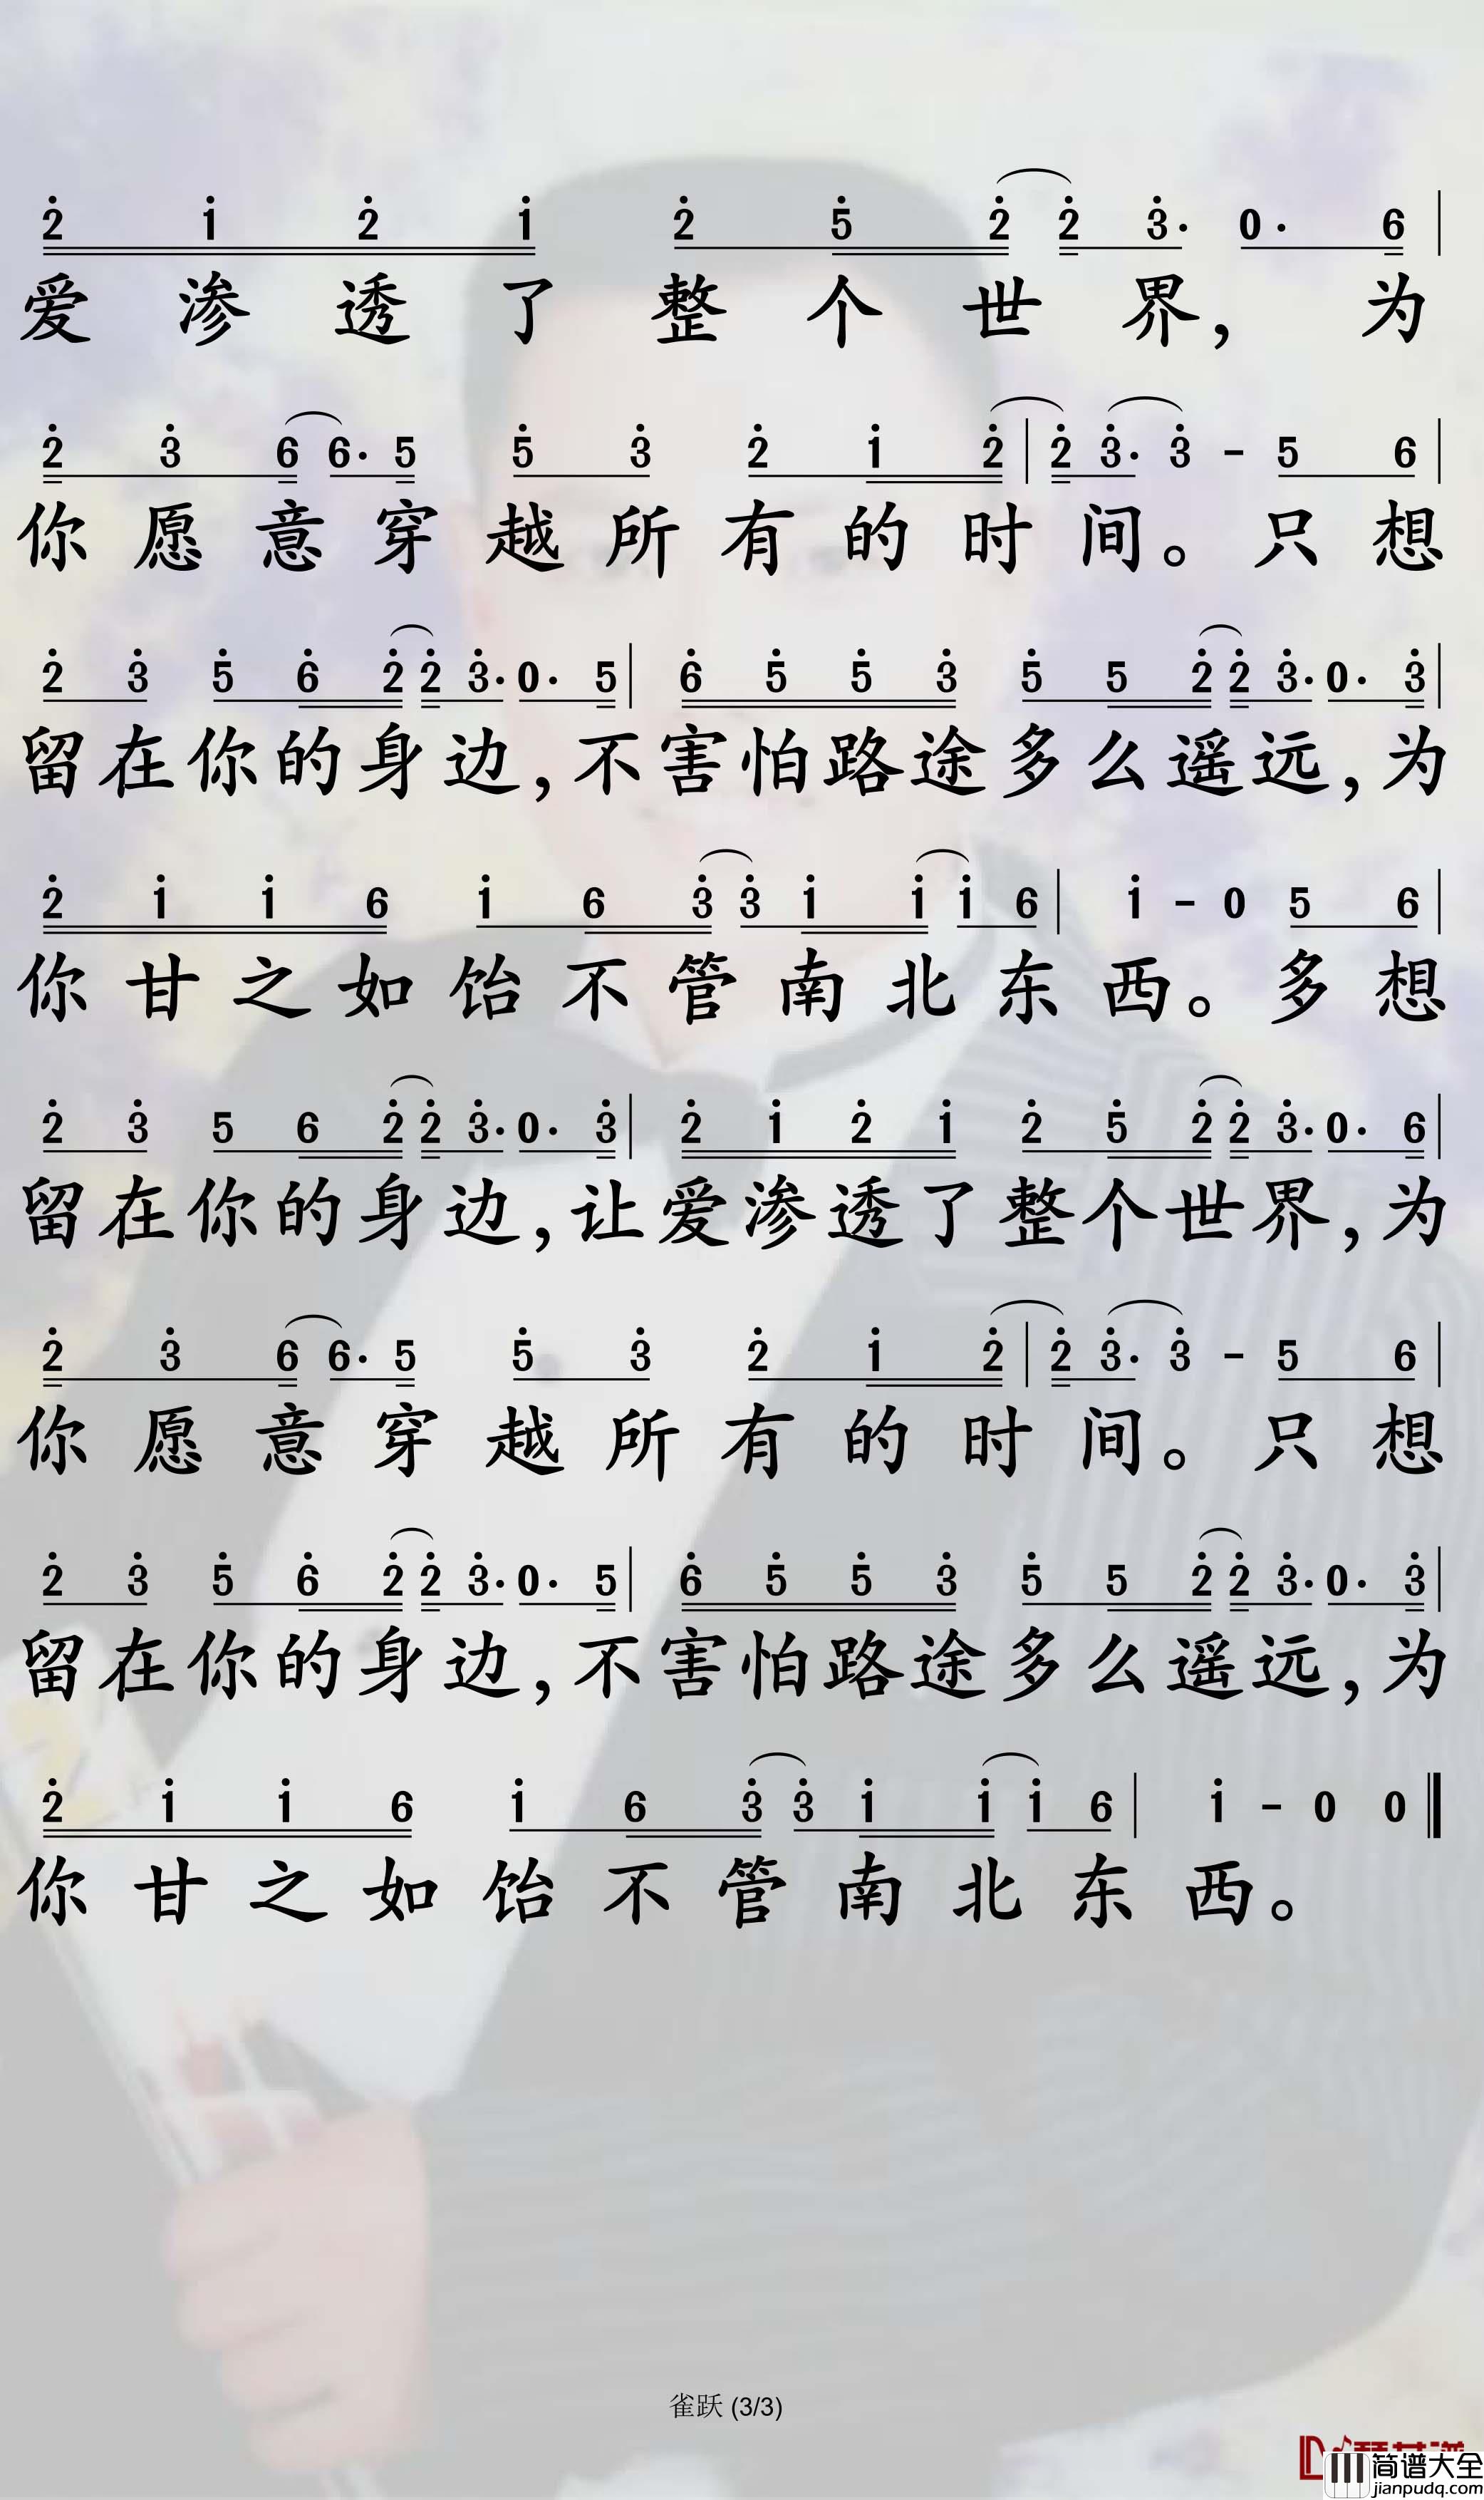 2 1 2 1 2 5 2 2 3· 0· 6
爱渗透了整个世界，为
2 3 6 6· 5 5 3 2 1 2 | 2 3· 3 - 5 6
你愿意穿越所有的时间。只想
2 3 5 6 2 2 3· 0· 5 | 6 5 5 3 5 5 2 2 3· 0· 3
留在你的身边，不害怕路途多么遥远，为
2 1 1 6 1 6 3 3 1 1 1 6 | 1 - 0 5 6
你甘之如饴不管南北东西。多想
2 3 5 6 2 2 3· 0· 3 | 2 1 2 1 2 5 2 2 3· 0· 6
留在你的身边，让爱渗透了整个世界，为
2 3 6 6· 5 5 3 2 1 2 | 2 3· 3 - 5 6
你愿意穿越所有的时间。只想
2 3 5 6 2 2 3· 0· 5 | 6 5 5 3 5 5 2 2 3· 0· 3
留在你的身边，不害怕路途多么遥远，为
2 1 1 6 1 6 3 3 1 1 1 6 | 1 - 0 0
你甘之如饴不管南北东西。
雀跃 (3/3)
简谱大全
jianpudq.com